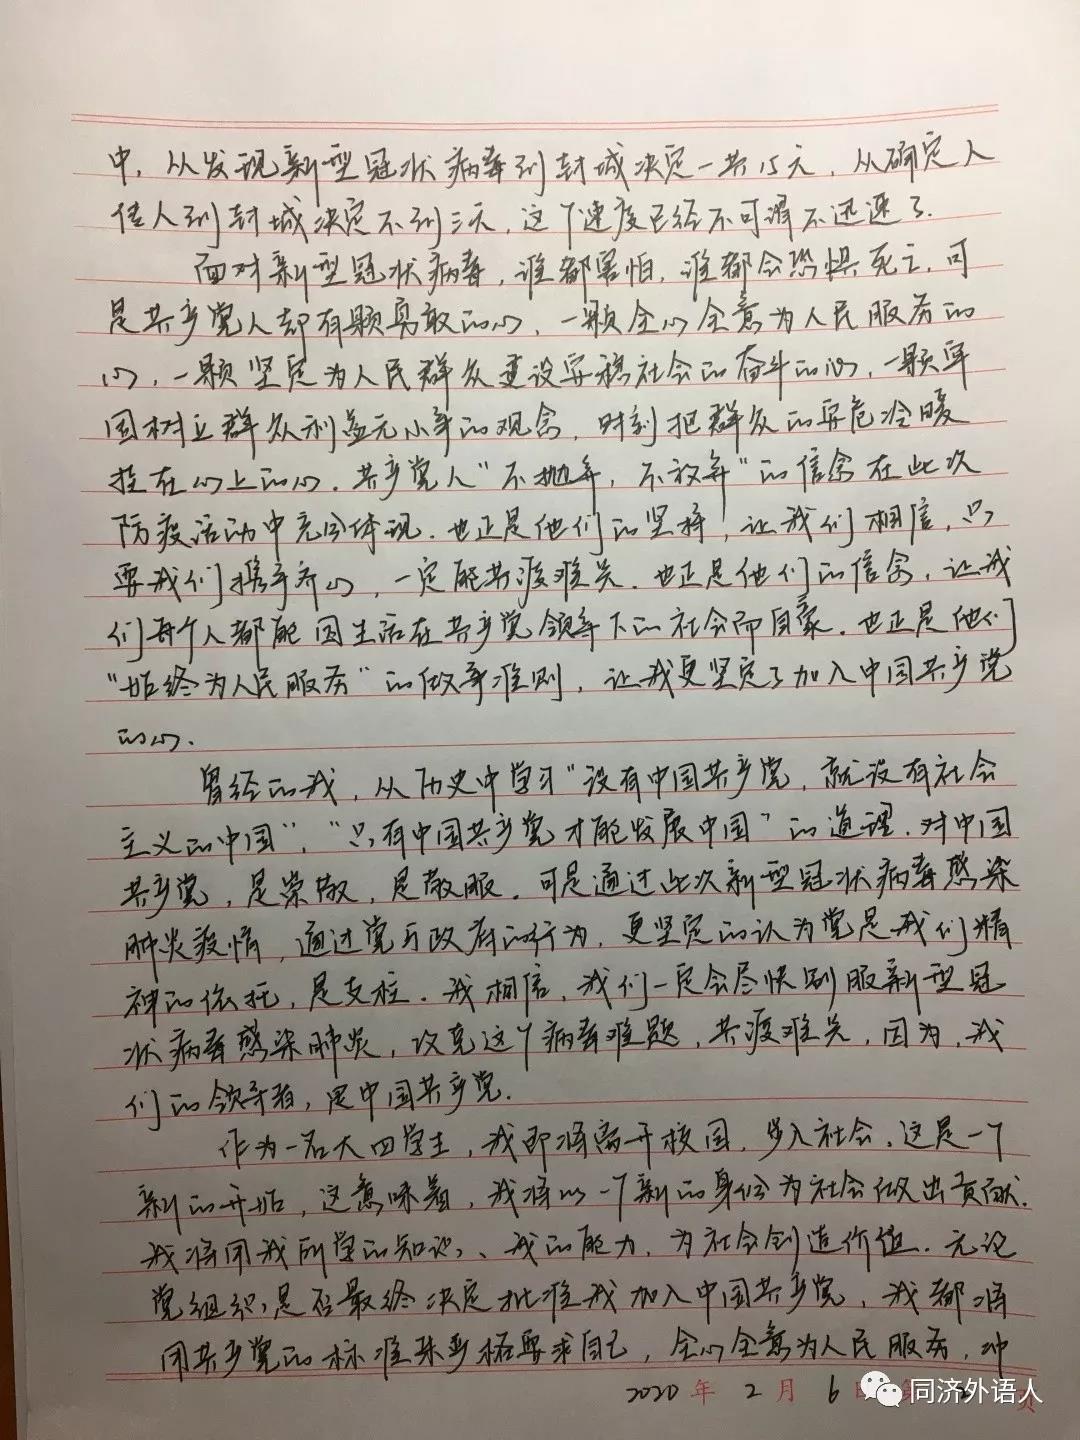 中，从发现新型冠状病毒到封城决定一共15天，从确定人
传人到封城决定不到三天，这个速度已经不可谓不迅速了．
面对新型冠状病毒，谁都害怕，谁都会恐惧死亡，可
是共产党人却有颗勇敢的心，一颗全心全意为人民服务的
心，一颗坚定为人民群众建设安稳社会的奋斗的心，一颗牢
固树立群众利益无小事的观念，时刻把群众的安危冷暖
挂在心上的心．共产党人“不抛弃，不放弃”的信念在此次
防疫活动中充分体现．也正是他们的坚持，让我们相信，只
要我们携手齐心，一定能共渡难关．也正是他们的信念，让我
们每个人都能因生活在共产党领导下的社会而自豪．也正是他们
“始终为人民服务”的做事准则，让我更坚定了加入中国共产党
的心．
曾经的我，从历史中学习“没有中国共产党，就没有社会
主义的中国”，“只有中国共产党才能发展中国”的道理．对中国
共产党，是崇敬，是敬服．可是通过此次新型冠状病毒感染
肺炎疫情，通过党与政府的行为，更坚定的认为党是我们精
神的依托，是支柱．我相信，我们一定会尽快制服新型冠
状病毒感染肺炎，攻克这个病毒难题，共渡难关，因为，我
们的领导者，是中国共产党．
作为一名大四学生，我即将离开校园，步入社会．这是一个
新的开始，这意味着，我将以一个新的身份为社会做出贡献．
我将用我所学的知识、我的能力，为社会创造价值．无论
党组织是否最终决定批准我加入中国共产党，我都将
用共产党的标准来严格要求自己，全心全意为人民服务，冲
2020年 2月 6日 第 页
同济外语人